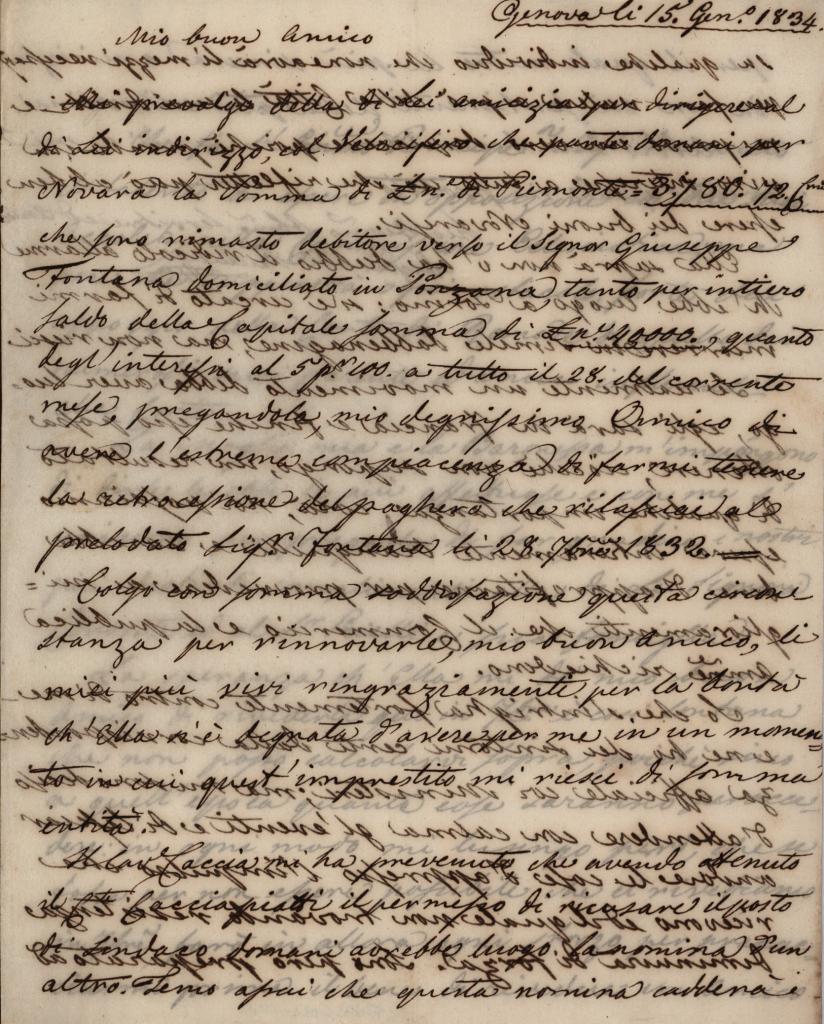 Genova li 15. Gen.º 1834.
Mio buon Amico
Mi prevalgo della di Lei amicizia per dirigere al
di Lei indirizzo, col Velocifero che parte domani per
Novara la Somma di £ n.e di Piemonte = 3780. 72.
che sono rimasto debitore verso il Signor Giuseppe
Fontana domiciliato in Ponzana tanto per intiero
saldo della Capitale somma di £ n.e 20000., quanto
degl'interessi al 5 p.r 100. a tutto il 28. del corrente
mese, pregandola, mio degnissimo Amico di
avere l'estrema compiacenza di farmi tenere
la retrocessione del pagherò che rilasciai al
prelodato Sig.r Fontana li 28. 7bre 1832. —
Colgo con somma soddisfazione questa circon
stanza per rinnovarle, mio buon amico, li
miei più vivi ringraziamenti per la bontà
ch'Ella s'è degnata d'avere per me in un momen-
to in cui quest'imprestito mi riescì di somma
entità.
Il Cav. Caccia mi ha prevenuto che avendo ottenuto
il Cte Cacciapiatti il permesso di ricusare il posto
di Sindaco domani avrebbe luogo la nomina d'un
altro. Temo assai che questa nomina cadderà